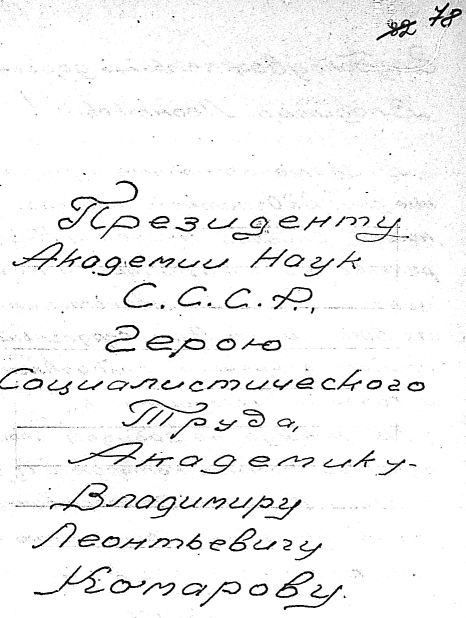 82 78
Президенту
Академии Наук
С.С.С.Р.,
Герою
Социалистического
Труда,
Академику-
Владимиру
Леонтьевичу
Комарову.